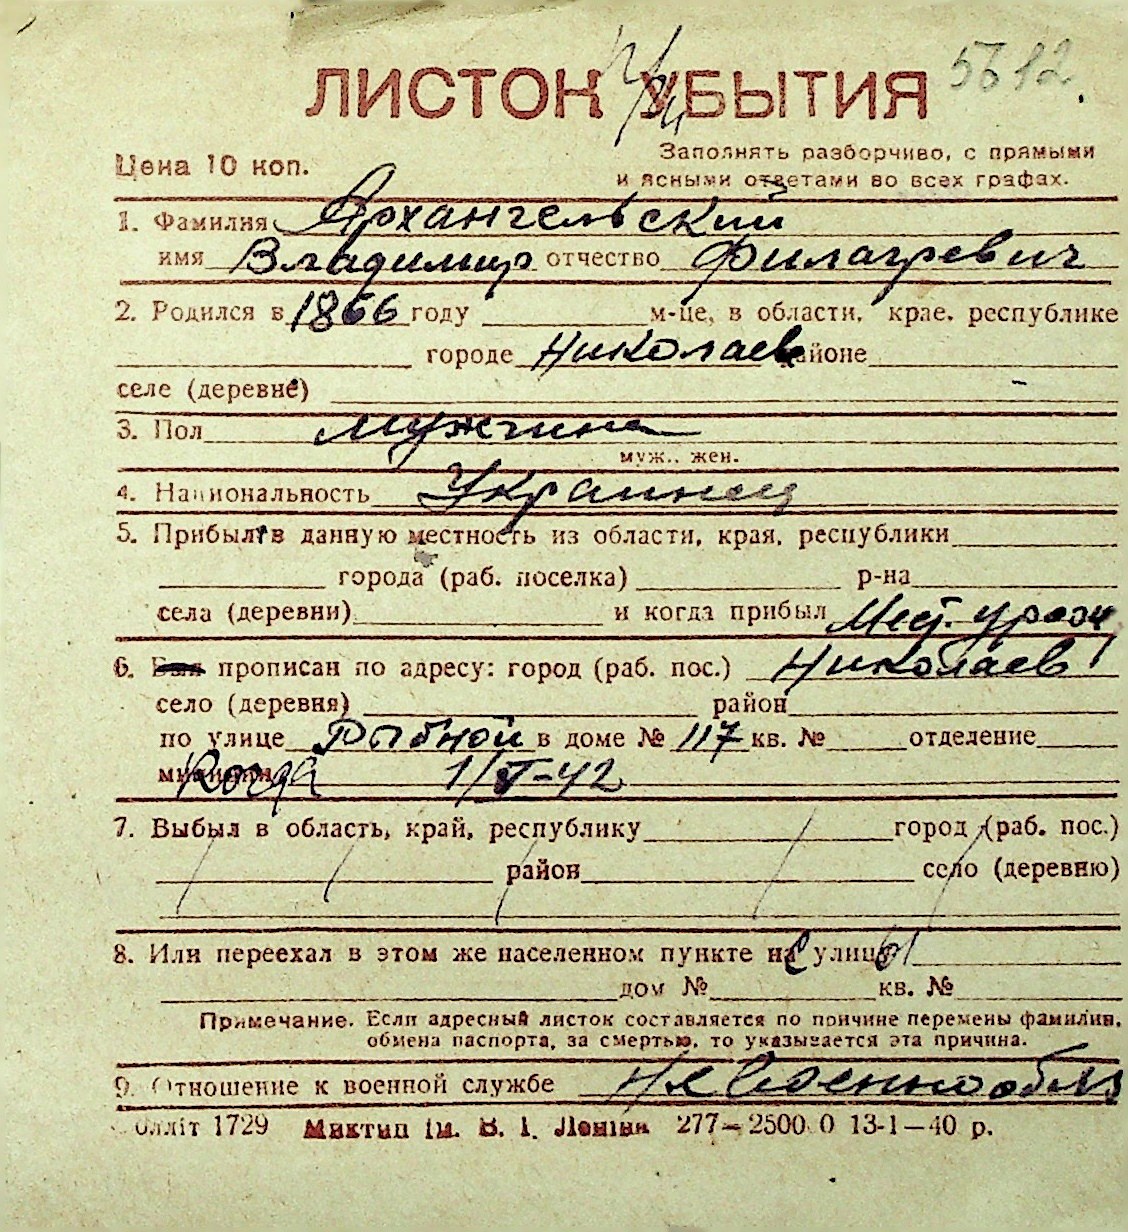 5612
ЛИСТОК УБЫТИЯ
Цена 10 коп.
Заполнять разборчиво, с прямыми
и ясными ответами во всех графах.
1. Фамилия Архангельский
имя Владимир отчество Филагревич
2. Родился в 1866 году м-це, в области, крае, республике
городе Николаев районе
селе (деревне)
3. Пол мужчина
муж., жен.
4. Национальность Украинец
5. Прибыл в данную местность из области, края, республики
города (раб. поселка) р-на
села (деревни) и когда прибыл Мест. урож
6. прописан по адресу: город (раб. пос.) Николаев
село (деревня) район
по улице Рыбной в доме № 117 кв. № отделение
милиции Когда 1/VI-42
7. Выбыл в область, край, республику город (раб. пос.)
район село (деревню)
8. Или переехал в этом же населенном пункте с улицы
дом № кв. №
Примечание. Если адресный листок составляется по причине перемены фамилии,
обмена паспорта, за смертью, то указывается эта причина.
9. Отношение к военной службе Не военнообяз
облліт 1729 Миктип ім. В. І. Леніна 277—2500 0 13-1—40 р.